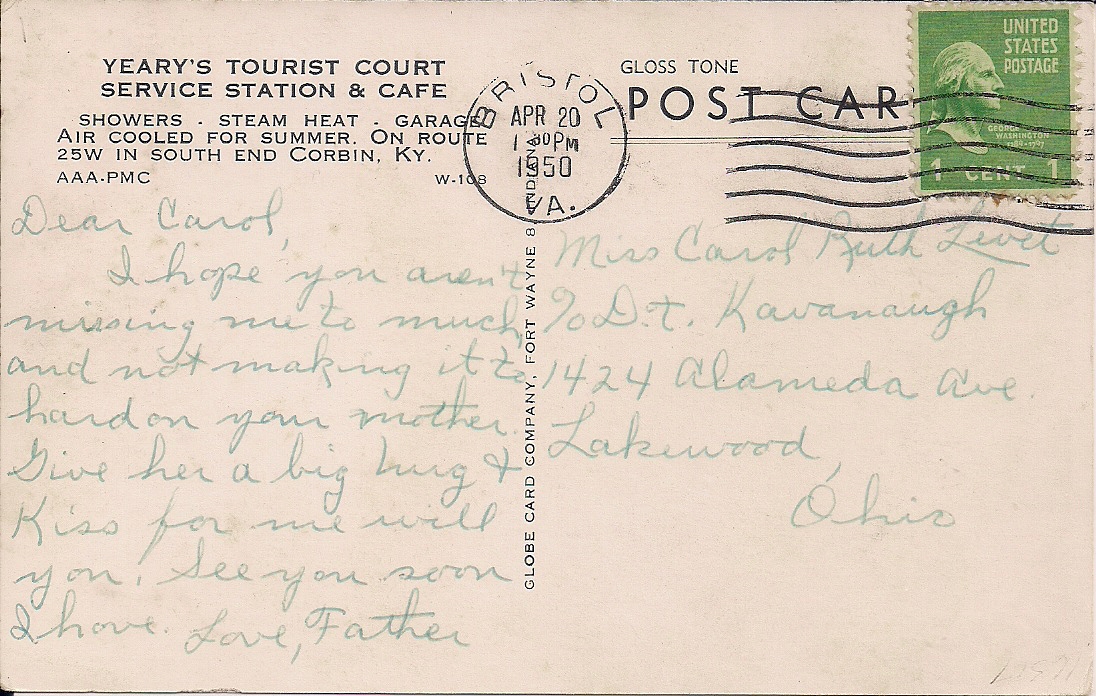 YEARY'S TOURIST COURT
SERVICE STATION & CAFE
SHOWERS - STEAM HEAT - GARAGE
AIR COOLED FOR SUMMER. ON ROUTE
25W IN SOUTH END CORBIN, KY.
AAA-PMC W-108
BRISTOL
APR 20
30PM
1950
VA.
GLOSS TONE
POST CAR
UNITED
STATES
POSTAGE
GEORGE
WASHINGTON
1 CENT 1
Dear Carol,
I hope you aren't
missing me to much,
and not making it to
hard on your mother.
Give her a big hug &
Kiss for me will
you. See you soon
I hove. Love, Father
GLOBE CARD COMPANY, FORT WAYNE 8 INDIANA
Miss Carol Ruth Livet
% D.T. Kavanaugh
1424 Alameda Ave.
Lakewood,
Ohio